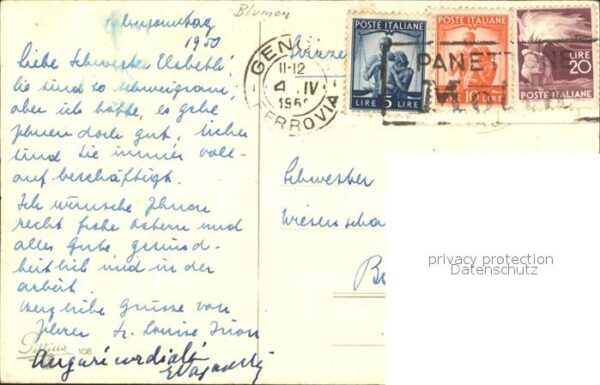 Blumen
1950
Liebe Schwester Elsbeth!
Sie sind so schweigsam,
aber ich hoffe, es gehe
Ihnen doch gut, sicher
sind Sie immer voll-
auf beschäftigt.
Ich wünsche Ihnen
recht frohe Ostern und
alles Gute, gesund-
heitlich und in der
arbeit.
liebe Grüsse von
Ihrer Sr. Louise
Auguri cordiali
108
GEN
11-12
4 IV
FERROVIA
POSTE ITALIANE
LIRE 5 LIRE
POSTE ITALIANE
LIRE 10 LIRE
LIRE
20
POSTE ITALIANE
PANET
Schwester
privacy protection
Datenschutz